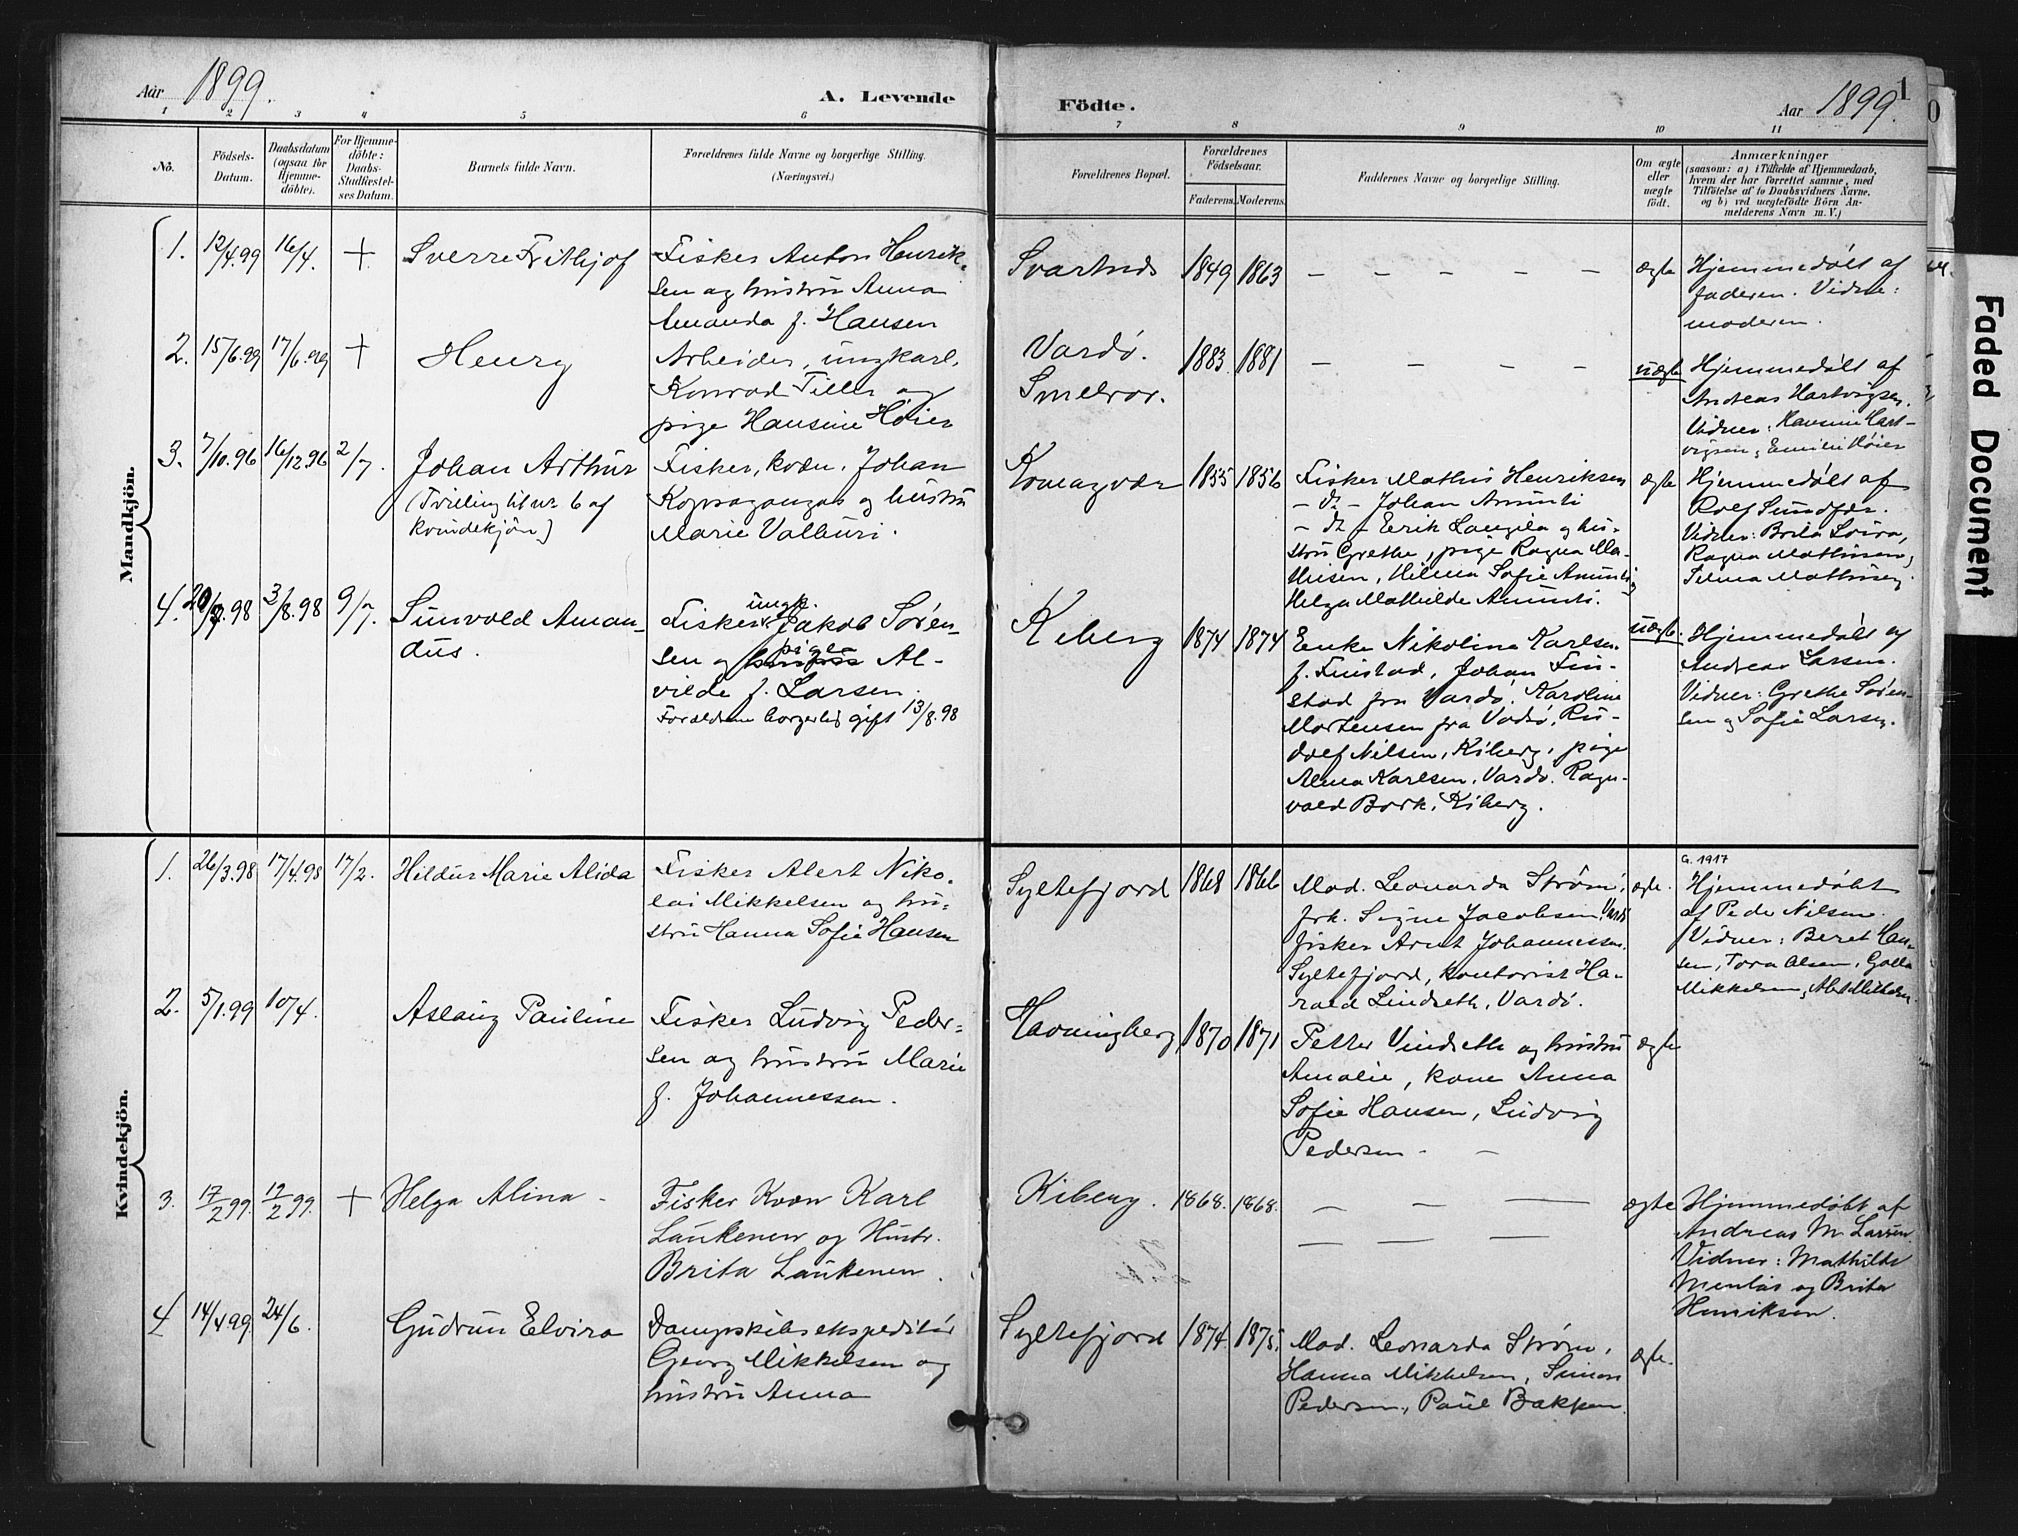 Aar 1899.
A. Levende
1 2 3 4 5 6
No.
Födsels-
Datum.
Daabsdatum
(ogsaa for
Hjemme-
döbte).
For Hjemme-
döbte:
Daabs-
Stadfæstel-
ses Datum.
Barnets fulde Navn.
Forældrenes fulde Navne og borgerlige Stilling.
(Næringsvei.)
Mandkjön.
1. 12/4.99 16/4. + Sverre Frithjof
Fisker Anton Henrik-
sen og hustru Anna
Amanda f. Hansen
2. 15/6.99 17/6.99 + Henry
Arbeider, ungkarl,
Konrad Tiller og
pige Hansine Høier
3. 7/10.96 16/12 96 2/7. Johan Arthur
(Tvilling til nr 6 af
kvindekjøn)
Fisker, kvæn, Johan
og hustru
Marie
4. /7.98 3/8.98 9/7. Sunvald Aman-
dus.
ungk.
Fisker Jakob Søren-
pige
sen og Al-
vilde f. Larsen.
Forældrene borgerlig gift 13/8.98
Kvindekjön.
1. 26/3.98 17/4.98 17/2. Hildur Marie Alida
Fisker Alert Niko-
lai Mikkelsen og hu-
stru Hanna Sofie Hansen
2. 5/1.99 10/4. Aslaug Pauline
Fisker Ludvig Peder-
sen og hustru Marie
f. Johannessen.
3. 17/2 99. 19/2 99. + Helga Alina
Fisker Kvæn Karl
Laukenen og Hustr.
Brita Laukenen.
4 14/4 99 24/6. Gudrun Elvira
Dampskibsekspeditør
Georg Mikkelsen og
hustru Anna
Födte.
Aar 1899.
1
7 8 9 10 11
Forældrenes Bopæl.
Forældrenes
Födselsaar.
Faderens. Moderens.
Faddernes Navne og borgerlige Stilling.
Om ægte
eller
uægte
födt.
Anmærkninger
(saasom: a) i Tilfælde af Hjemmedaab,
hvem der har forrettet samme, med
Tilföielse af to Daabsvidners Navne.
og b) ved uægtefödte Börn An-
melderens Navn m. V.)
Svartnes 1849 1863 – – – – – ægte
Hjemmedøbt af
faderen. Vidne:
moderen.
Vardø.
Smelror.
1883 1881 – – – – uægte
Hjemmedøbt af
Andreas Hartvigsen.
Vidner: Hansine Hart-
vigsen, Høier
Komagvær 1855 1856
Fisker Mathis Henriksen
– d. – Johan Amunti
– d. – Erik og hu-
stru Grethe, pige Ragna Ma-
thisen, Hilma Sofie Amunti,
Helga Mathilde Amunti.
ægte
Hjemmedøbt af
Rolf Sundfær.
Vidner: Brita
Ragna Mathisen,
Selma Mathisen.
Kiberg 1874 1874
Enke Nikoline Karlsen
f. Finstad, Johan Fin-
stad fra Vardø, Karoline
Mortensen fra Vadsø, Ru-
dolf Nilsen, Kiberg, pige
Alma Karlsen, Vardø. Ragn-
vald Bork, Kiberg.
uægte.
Hjemmedøbt af
Andreas Larsen.
Vidner: Grethe Søren-
sen og Sofie Larsen.
G. 1917
Syltefjord 1868 1866
Mad. Leonarda Strøm,
frk. Signe Jacobsen, Vardø
fisker Arnt Johannessen.
Syltefjord, kontorist Ha-
rald Lindseth, Vardø.
ægte.
Hjemmedøbt
af Peder Nilsen.
Vidner: Beret Han-
sen, Tora Olsen,
Mikkelsen, Alert Mikkelsen.
Havningberg 1870 1871
Petter Vindseth og hustru
Amalie, kone Anna
Sofie Hansen, Ludvig
Pedersen. –
ægte
Kiberg. 1868. 1868. – – –
– – –
ægte
Hjemmedøbt af
Andreas M. Larsen
Vidner: Mathilde
og Brita
Henriksen.
Syltefjord 1874. 1875.
Mad. Leonarda Strøm,
Hanna Mikkelsen, Simon
Pedersen, Paul Bakken.
ægte.
Faded Document